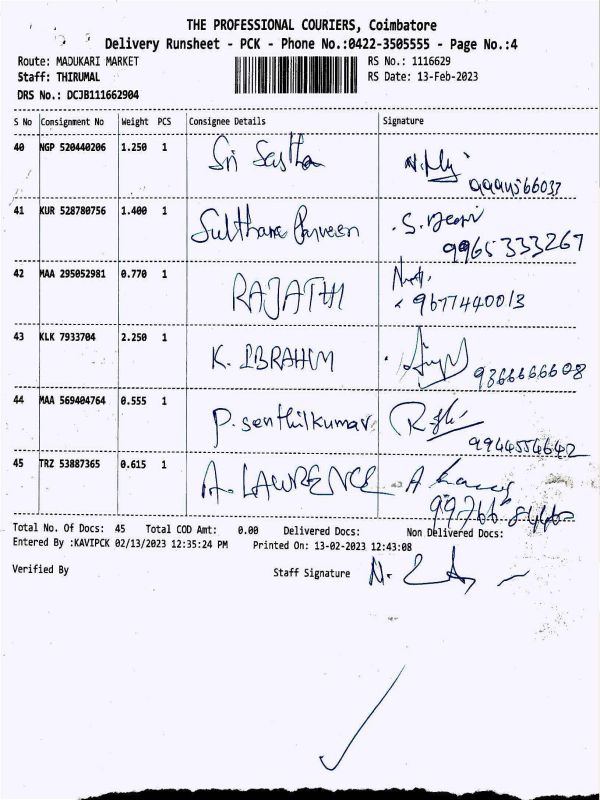 THE PROFESSIONAL COURIERS, Coimbatore
Delivery Runsheet - PCK - Phone No.:0422-3505555 - Page No.:4
Route: MADUKARI MARKET RS No.: 1116629
Staff: THIRUMAL RS Date: 13-Feb-2023
DRS No.: DCJB111662904
S No Consignment No Weight PCS Consignee Details Signature
40 NGP 520440206 1.250 1 Sri Sastha
41 KUR 528780756 1.400 1 Sulthana Parveen 9965333267
42 MAA 295052981 0.770 1 RAJATHI 9677440013
43 KLK 7933704 2.250 1 K. IBRAHIM 9366666608
44 MAA 569404764 0.555 1 P. senthilkumar 9944554642
45 TRZ 53887365 0.615 1 A. LAWRENCE
Total No. Of Docs: 45 Total COD Amt: 0.00 Delivered Docs: Non Delivered Docs:
Entered By :KAVIPCK 02/13/2023 12:35:24 PM Printed On: 13-02-2023 12:43:08
Verified By Staff Signature